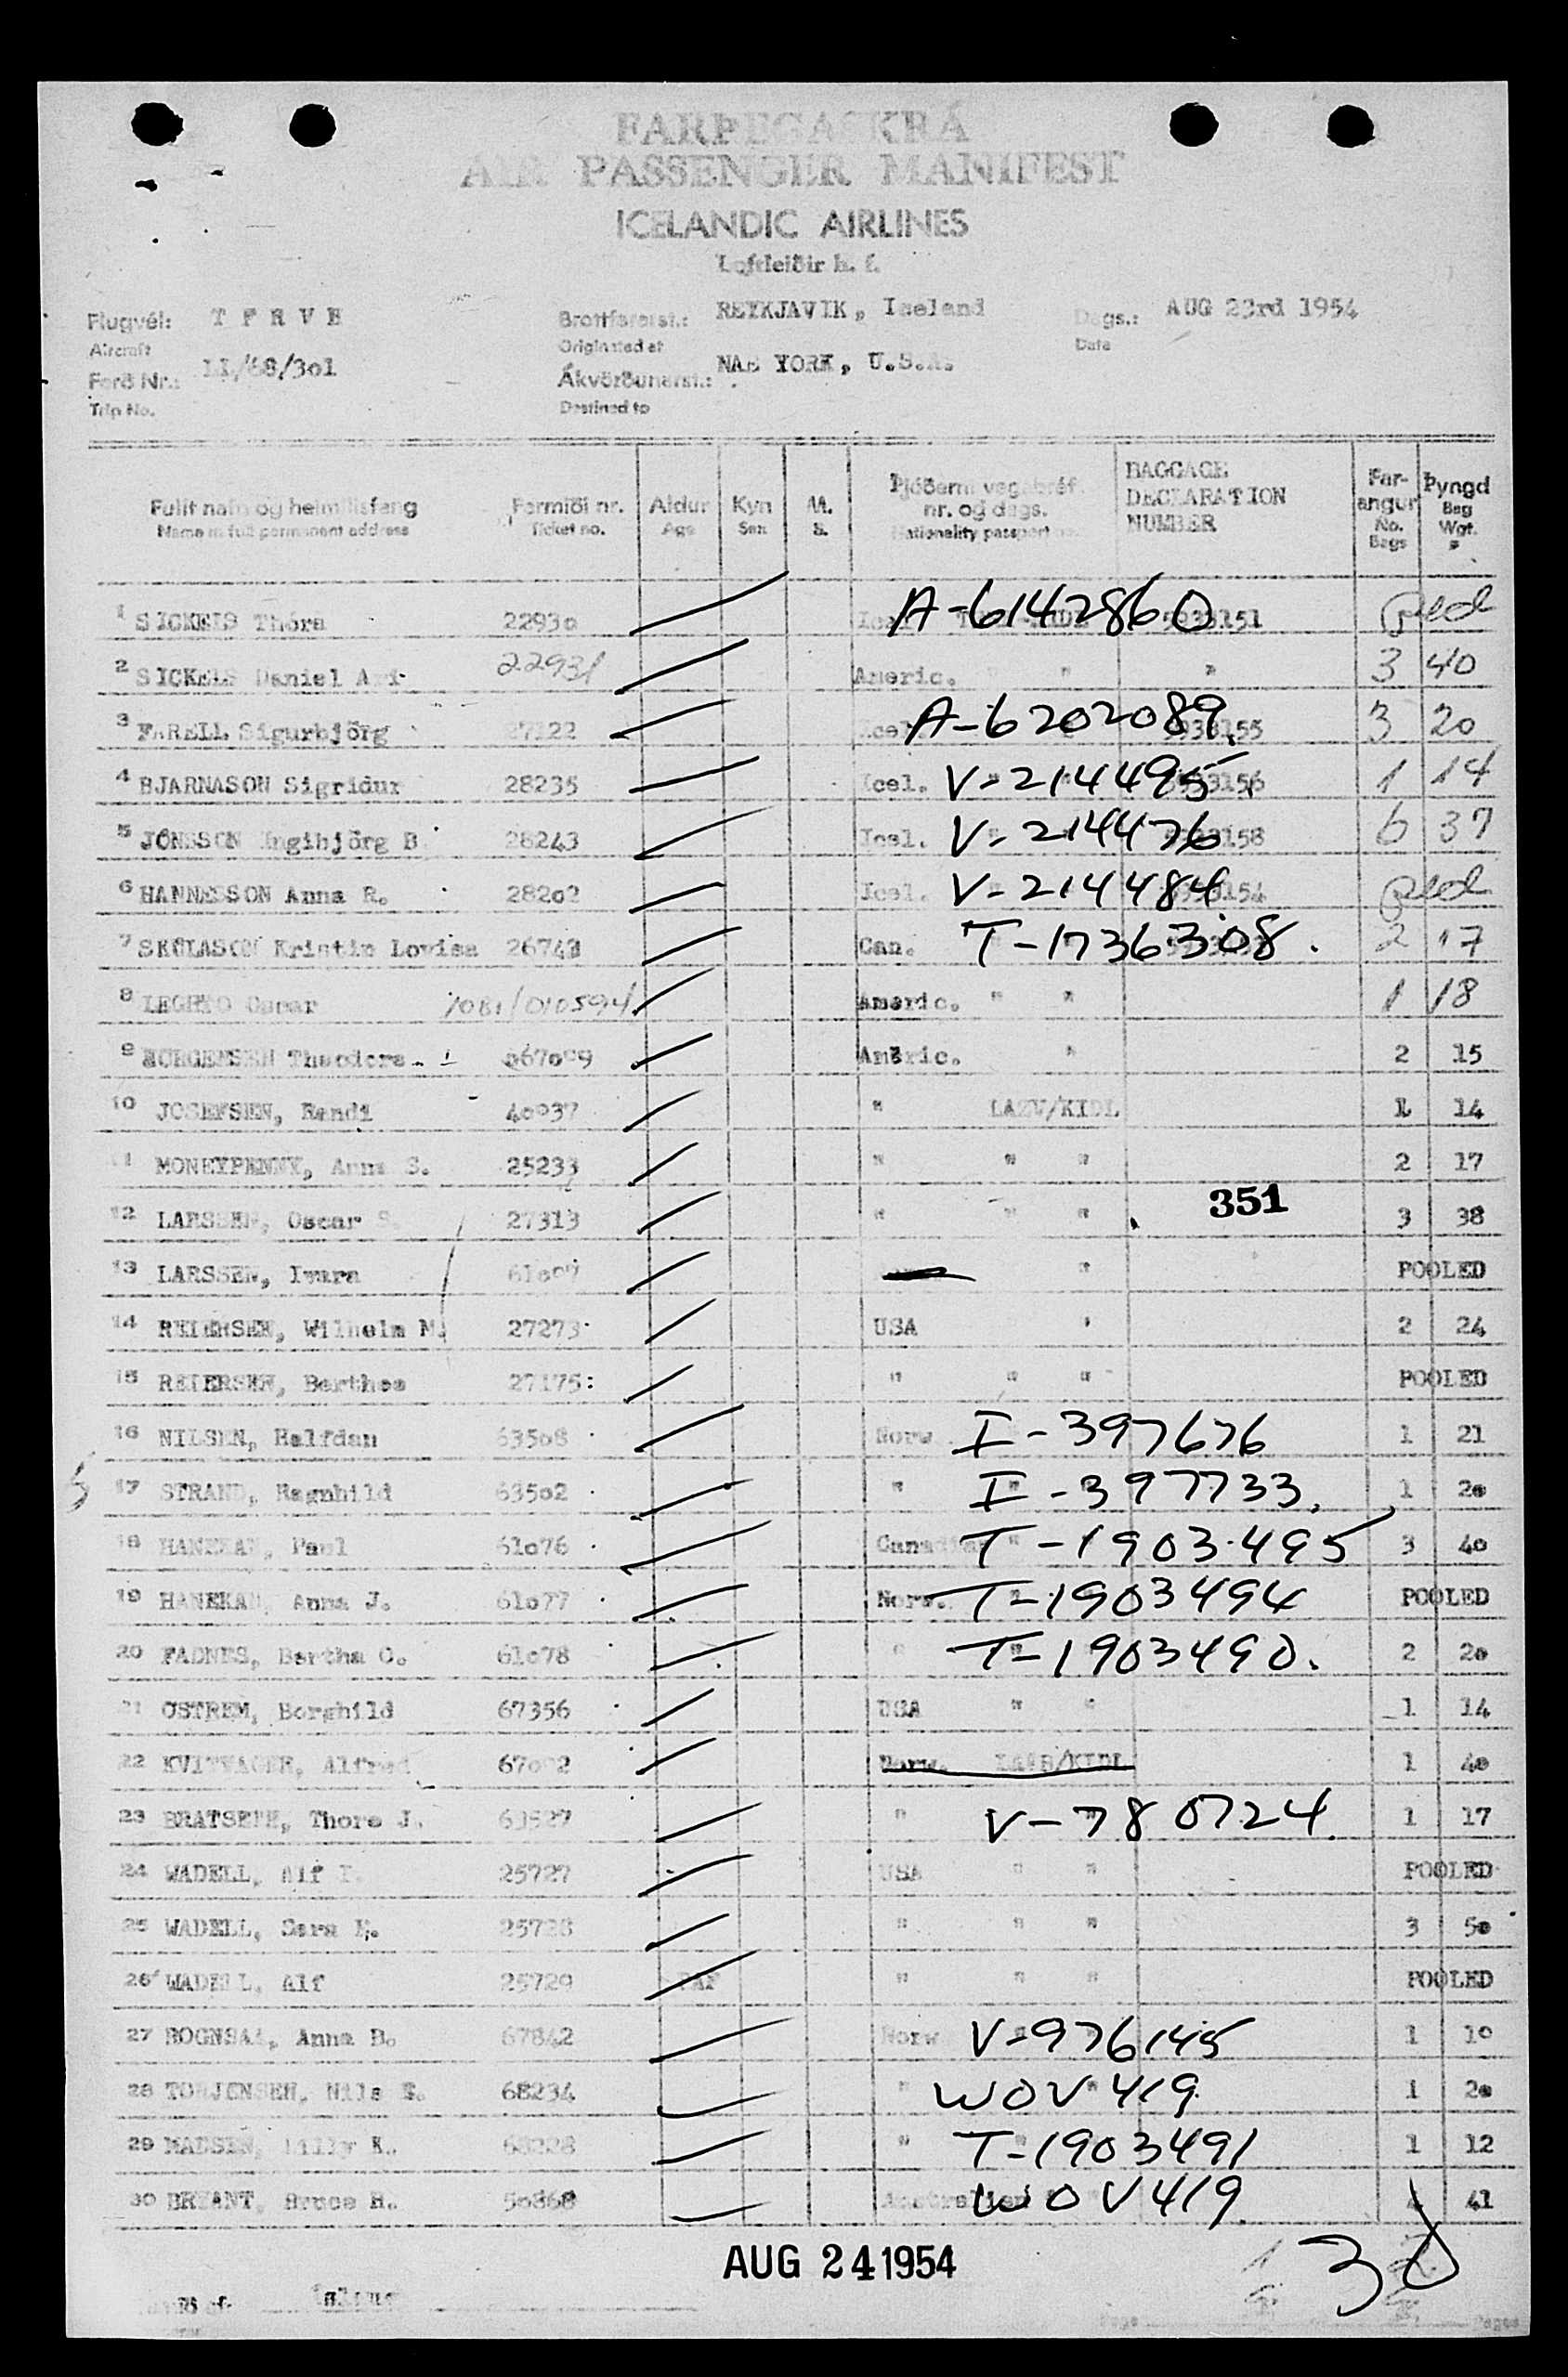 FARÞEGASKRÁ
AIR PASSENGER MANIFEST
ICELANDIC AIRLINES
Loftleiðir h. f.
Flugvél: T F R V H Brottfararst.: REYKJAVIK, Iceland Dags.: AUG 23rd 1954
Aircraft Originated at Date
Ferð Nr.: LL/68/3o1 Ákvörðunarst.: YORK, U.S.A.
Trip No. Destined to
Fullt nafn og heimilisfang Farmiði nr. Aldur Kyn M. Þjóðerni vegabréf. nr. og dags. BAGGAGE DECLARATION NUMBER Far-angur Þyngd
Name in full permanent address Ticket no. Age Sex S. Nationality passport no. No. Bags Bag Wgt.
1 SICKELS Thóra 2293o Icel. A-6142860 5933151 pled
2 SICKELS Daniel 22931 Americ. " " 3 40
3 FARELL Sigurbjörg 27122 Icel. A-6202089 5933155 3 20
4 BJARNASON Sigridur 28235 Icel. V-214495 5933156 1 14
5 JÓNSSON Ingibjörg B 28243 Icel. V-214476 5933158 6 37
6 HANNESSON Anna R. 282o2 Icel. V-214484 5933154 pled
7 SKÚLASON Kristin Lovisa Can. T-1736308. 2 17
8 Oscar 1081/010594 Americ. " " 1 18
9 Theodora Americ. " 2 15
10 JOSEFSEN, Randi 4oo37 " /KIDL 1 14
11 MONEYPENNY, Anna S. 25233 " " " 2 17
12 LARSSEN, Oscar S. 27313 " " " 351 3 38
13 LARSSEN, Ivara " POOLED
14 REIERSEN, Wilhelm M. 27273 USA " 2 24
15 REIERSEN, Berthea 27175 " " " POOLED
16 NILSEN, Halfdan 635o8 Norw I-397676 1 21
17 STRAND, Ragnhild 635o2 " " I-397733. 1 2o
18 HANEKAM, Paul 61o76 Canadian T-1903495 3 4o
19 HANEKAM, Anna J. 61o77 Norw. T-1903494 POOLED
20 FADNES, Bertha O. 61o78 " T-1903490. 2 2o
21 OSTREM, Borghild 67356 USA " " 1 14
22 Alfred Norw. /KIDL 1 4o
23 Thore J. 63527 " V-780724 1 17
24 WADELL, Alf 25727 USA " " POOLED
25 WADELL, Sara E. 25728 " " " 3 5o
26 WADELL, Alf 25729 " " " POOLED
27 ROGNSAA, Anna B. 67842 Norw V-976145 1 1o
28 TORJENSEN, Nils E. 68234 " WOV 419 1 2o
29 MADSEN, Lilly K. 68228 " T-1903491 1 12
30 BRYANT, Bruce H. 5o868 Australian WOV 419 41
AUG 24 1954
30
Page Pages